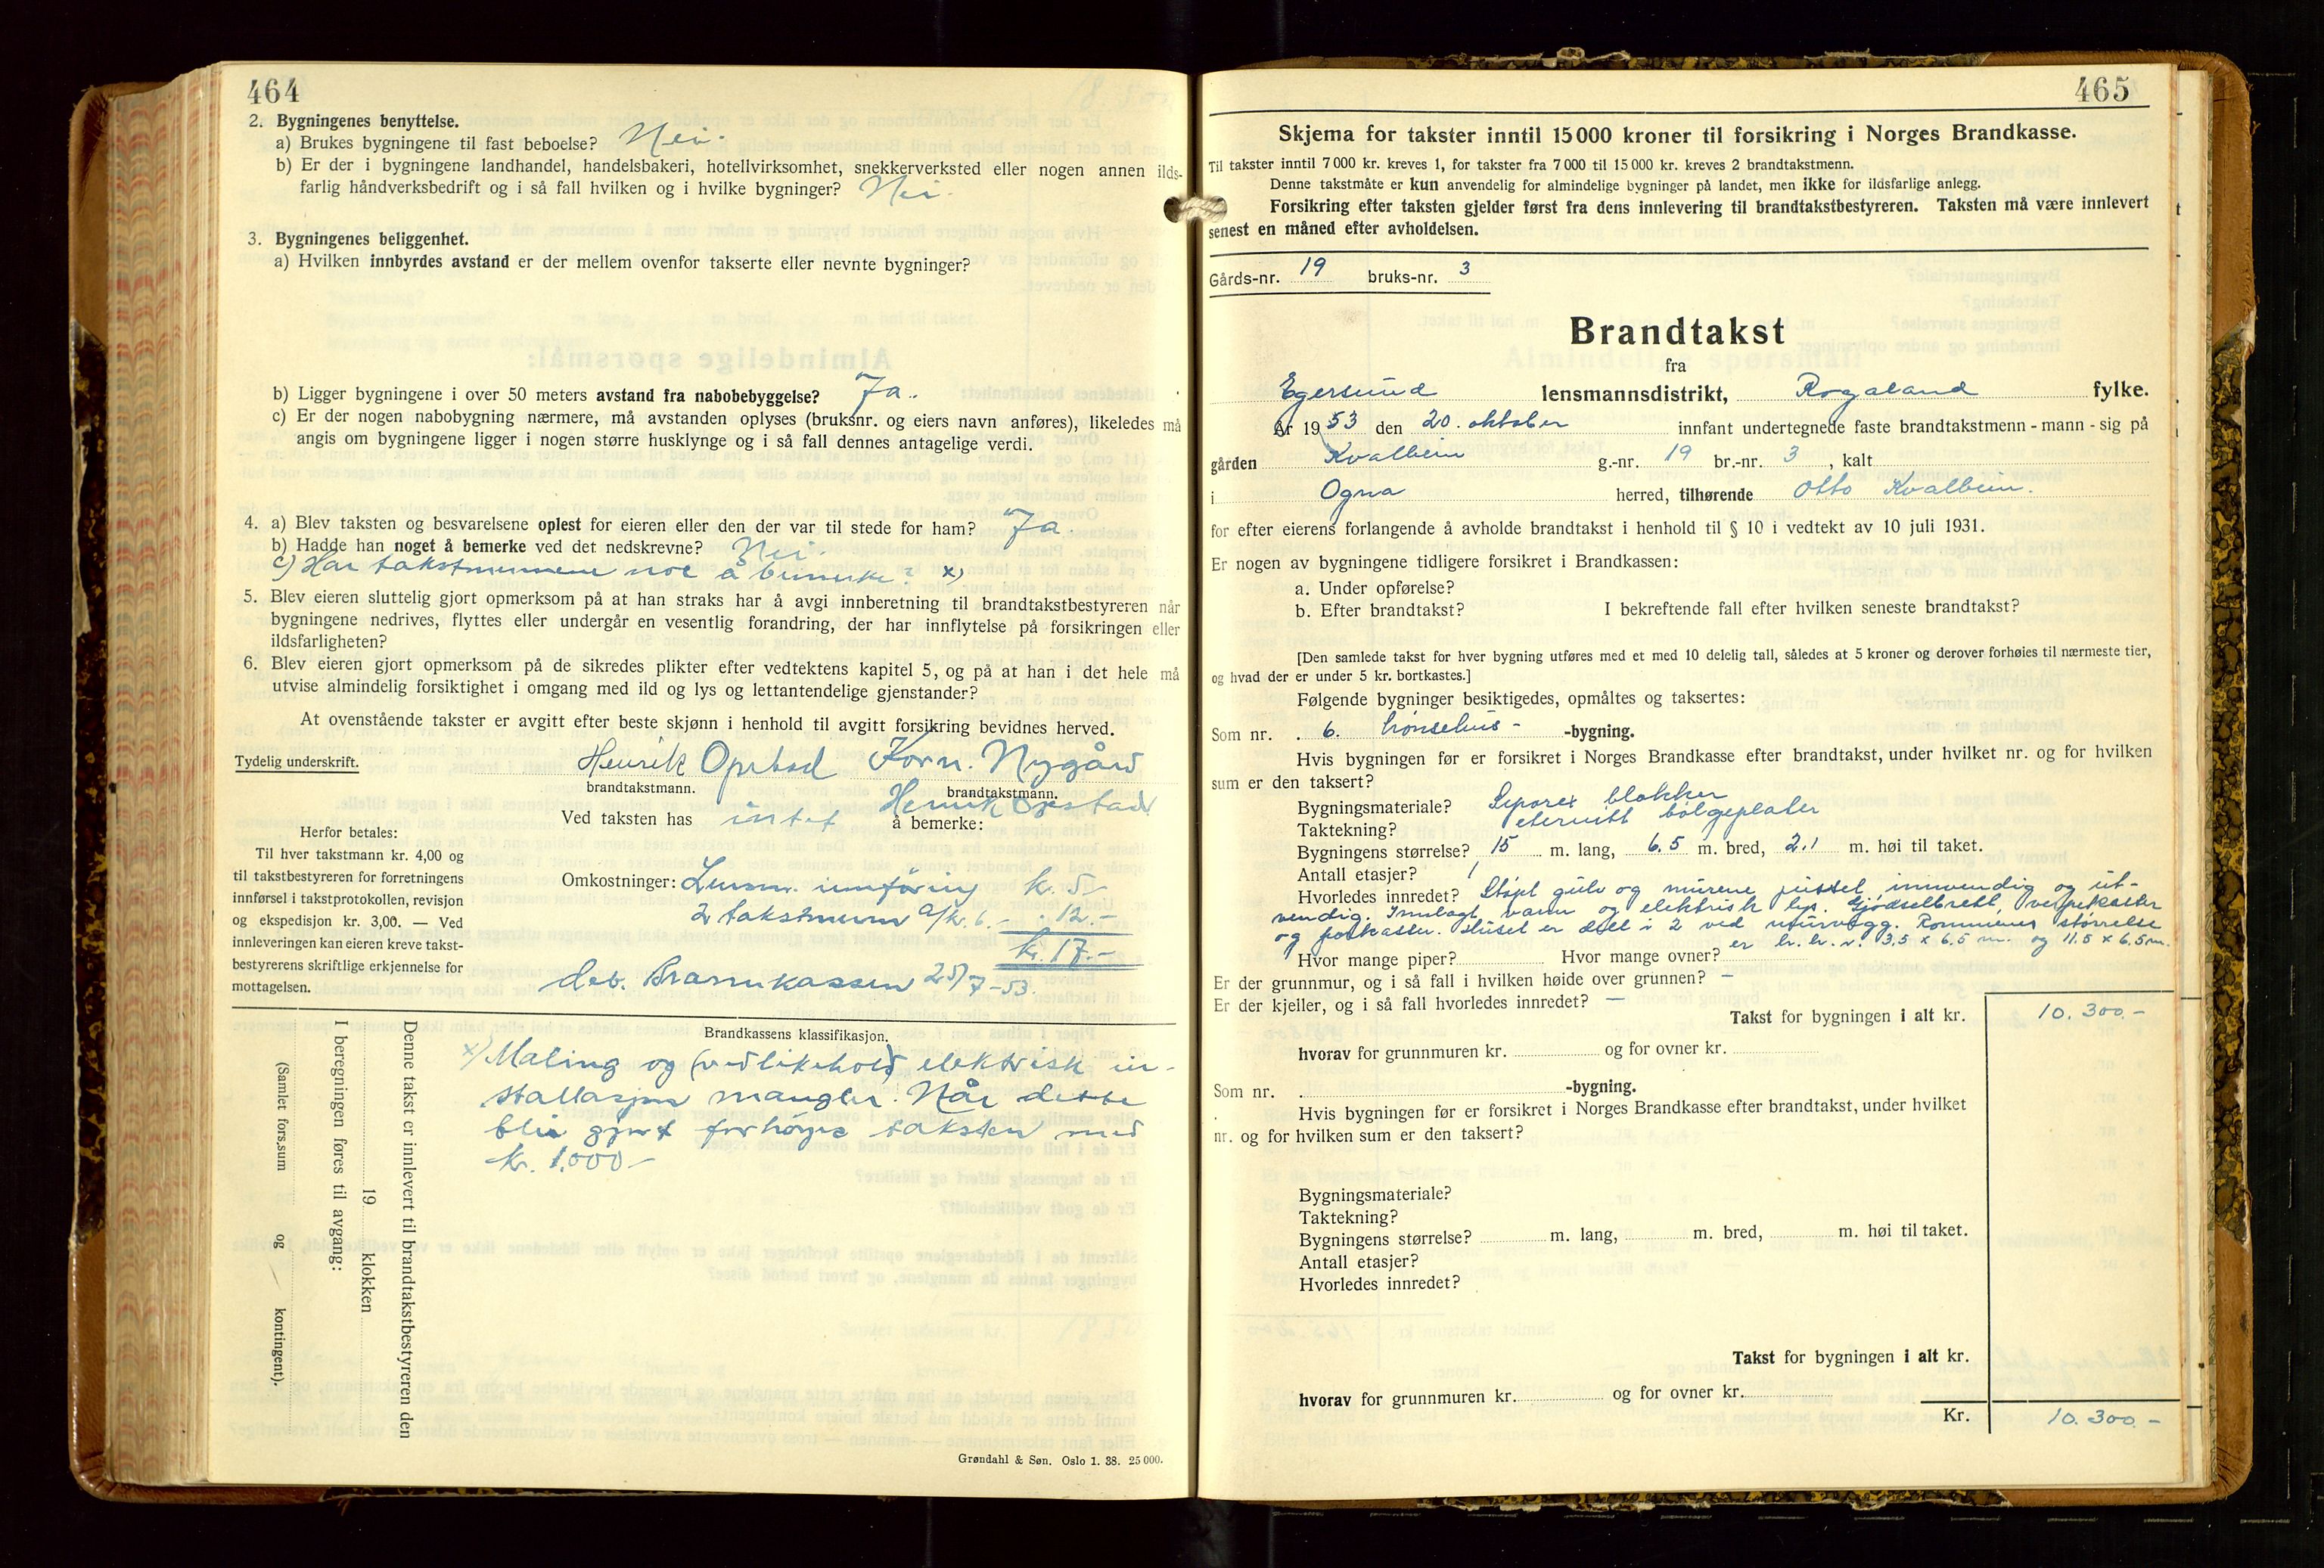 464
2. Bygningenes benyttelse.
a) Brukes bygningene til fast beboelse? Nei.
b) Er der i bygningene landhandel, handelsbakeri, hotellvirksomhet, snekkerverksted eller nogen annen ilds-
farlig håndverksbedrift og i så fall hvilken og i hvilke bygninger? Nei.
3. Bygningenes beliggenhet.
a) Hvilken innbyrdes avstand er der mellem ovenfor takserte eller nevnte bygninger?
b) Ligger bygningene i over 50 meters avstand fra nabobebyggelse? Ja.
c) Er der nogen nabobygning nærmere, må avstanden oplyses (bruksnr. og eiers navn anføres), likeledes må
angis om bygningene ligger i nogen større husklynge og i så fall dennes antagelige verdi.
4. a) Blev taksten og besvarelsene oplest for eieren eller den der var til stede for ham? Ja.
b) Hadde han noget å bemerke ved det nedskrevne? Nei.
c) Har takstmennene noe å bemerke? x)
5. Blev eieren sluttelig gjort opmerksom på at han straks har å avgi innberetning til brandtakstbestyreren når
bygningene nedrives, flyttes eller undergår en vesentlig forandring, der har innflytelse på forsikringen eller
ildsfarligheten?
6. Blev eieren gjort opmerksom på de sikredes plikter efter vedtektens kapitel 5, og på at han i det hele må
utvise almindelig forsiktighet i omgang med ild og lys og lettantendelige gjenstander?
At ovenstående takster er avgitt efter beste skjønn i henhold til avgitt forsikring bevidnes herved.
Tydelig underskrift. Henrik Opstad Korn. Nygård
brandtakstmann. brandtakstmann.
Henrik Opstad
Ved taksten has intet å bemerke:
Herfor betales:
Til hver takstmann kr. 4,00 og
til takstbestyreren for forretningens
innførsel i takstprotokollen, revisjon
og ekspedisjon kr. 3,00. — Ved
innleveringen kan eieren kreve takst-
bestyrerens skriftlige erkjennelse for
mottagelsen.
Omkostninger: Lensm. innføring kr. 5-
2 takstmenn a/kr. 6.- - 12.-
kr. 17.-
deb. Brannkassen 25/7-53.
Brandkassens klassifikasjon.
x) Maling og (vedlikehold) elektrisk in-
stallasjon mangler. Når dette
blir gjort forhøyes taksten med
kr. 1.000-
Denne takst er innlevert til brandtakstbestyreren den
19 klokken
I beregningen føres til avgang:
(Samlet fors.sum og kontingent).
Grøndahl & Søn. Oslo 1. 38. 25 000.
465
Skjema for takster inntil 15 000 kroner til forsikring i Norges Brandkasse.
Til takster inntil 7 000 kr. kreves 1, for takster fra 7 000 til 15 000 kr. kreves 2 brandtakstmenn.
Denne takstmåte er kun anvendelig for almindelige bygninger på landet, men ikke for ildsfarlige anlegg.
Forsikring efter taksten gjelder først fra dens innlevering til brandtakstbestyreren. Taksten må være innlevert
senest en måned efter avholdelsen.
Gårds-nr. 19 bruks-nr. 3
Brandtakst
fra
Egersund lensmannsdistrikt, Rogaland fylke.
År 1953 den 20. oktober innfant undertegnede faste brandtakstmenn - mann - sig på
gården Kvalbein g.-nr. 19 br.-nr. 3, kalt
i Ogna herred, tilhørende Otto Kvalbein.
for efter eierens forlangende å avholde brandtakst i henhold til § 10 i vedtekt av 10 juli 1931.
Er nogen av bygningene tidligere forsikret i Brandkassen:
a. Under opførelse?
b. Efter brandtakst? I bekreftende fall efter hvilken seneste brandtakst?
[Den samlede takst for hver bygning utføres med et med 10 delelig tall, således at 5 kroner og derover forhøies til nærmeste tier,
og hvad der er under 5 kr. bortkastes.]
Følgende bygninger besiktigedes, opmåltes og taksertes:
Som nr. 6. hønsehus- -bygning.
Hvis bygningen før er forsikret i Norges Brandkasse efter brandtakst, under hvilket nr. og for hvilken
sum er den taksert?
Bygningsmateriale? Siporex blokker
Taktekning? eternitt bølgeplater
Bygningens størrelse? 15 m. lang, 6.5 m. bred, 2.1 m. høi til taket.
Antall etasjer? 1
Hvorledes innredet? Støpt gulv og murene pusset innvendig og ut-
vendig. Innlagt vann og elektrisk lys. Gjødselbrett, verpekasser
og forkasser. Huset er delt i 2 ved murvegg. Rommenes størrelse
er h.h.v. 3.5 x 6.5 m. og 11.5 x 6.5m.
Hvor mange piper? Hvor mange ovner?
Er der grunnmur, og i så fall i hvilken høide over grunnen? —
Er der kjeller, og i så fall hvorledes innredet? —
Takst for bygningen i alt kr. 10.300.-
hvorav for grunnmuren kr. og for ovner kr.
Som nr. -bygning.
Hvis bygningen før er forsikret i Norges Brandkasse efter brandtakst, under hvilket
nr. og for hvilken sum er den taksert?
Bygningsmateriale?
Taktekning?
Bygningens størrelse? m. lang, m. bred, m. høi til taket.
Antall etasjer?
Hvorledes innredet?
Takst for bygningen i alt kr.
hvorav for grunnmuren kr. og for ovner kr.
Kr. 10.300.-